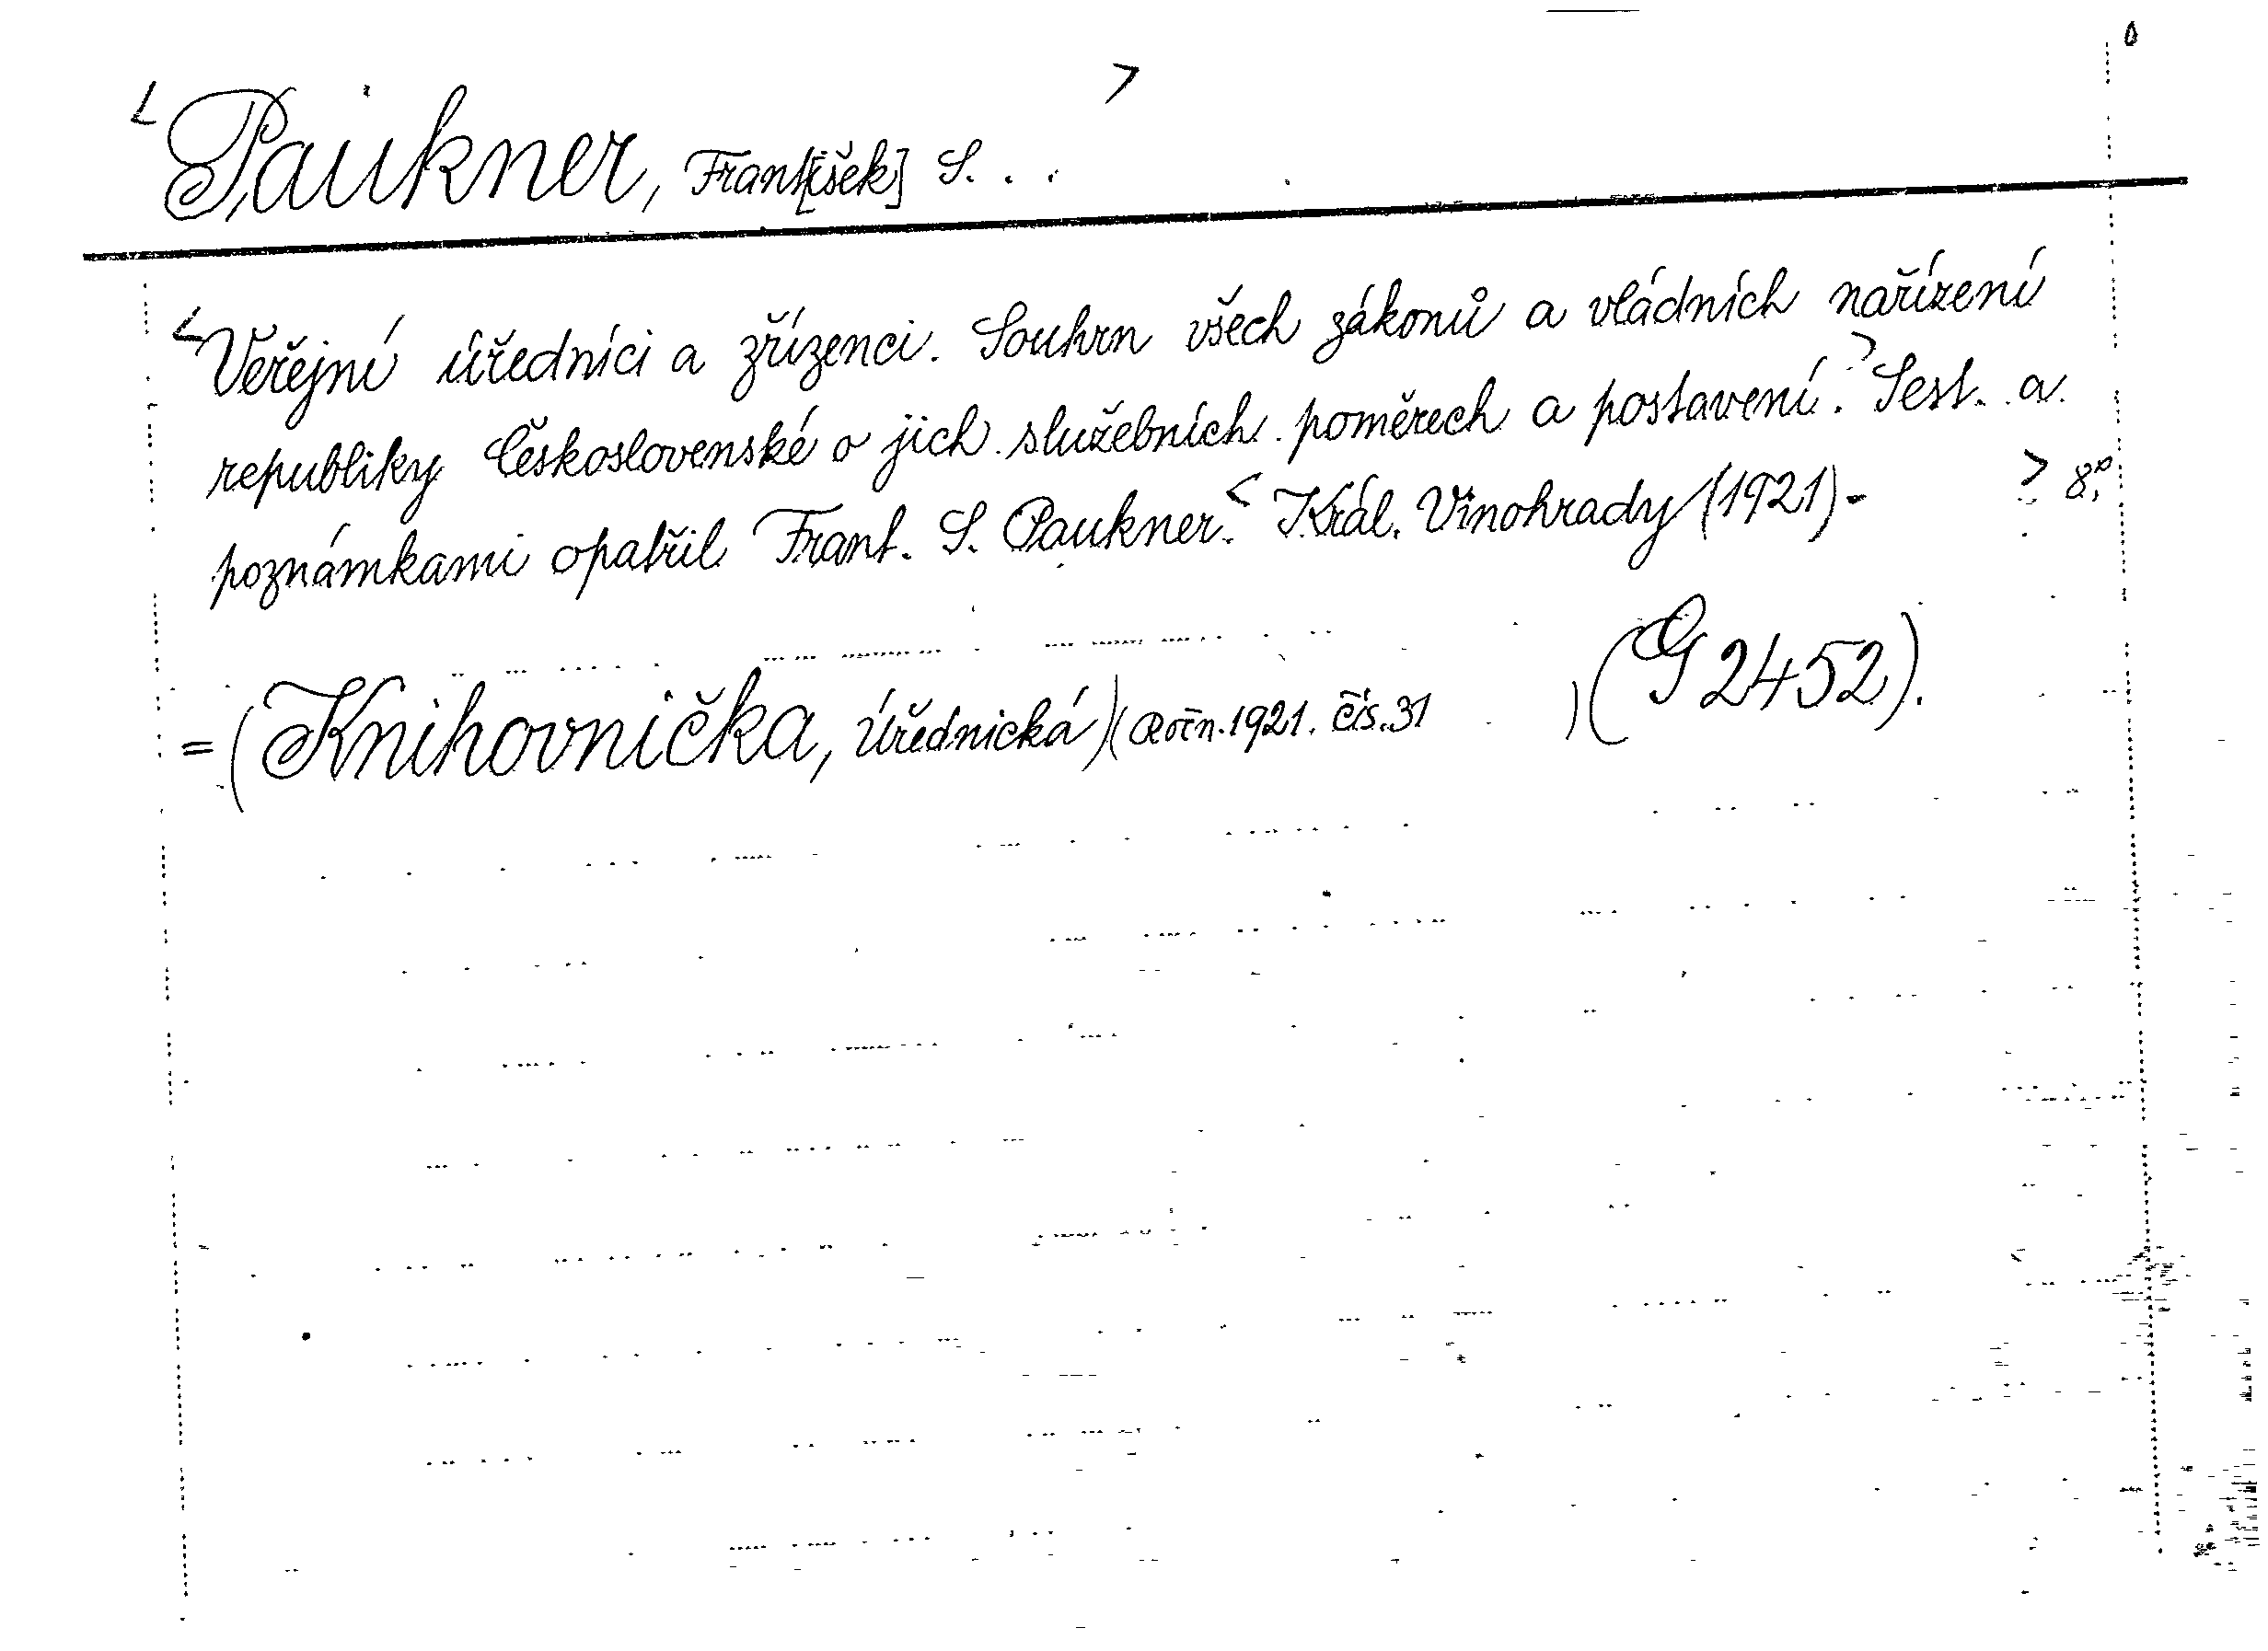 < Paukner, Frant[išek] S. . . >
< Veřejní úředníci a zřízenci. Souhrn všech zákonů a vládních nařízení
republiky Československé o jich služebních poměrech a postavení. > Sest. a
poznámkami opatřil Frant. S. Paukner. < Král. Vinohrady (1921) - > 8.°
= (Knihovnička, Úřednická) (Ročn. 1921. čís. 31 ) (G 2452).